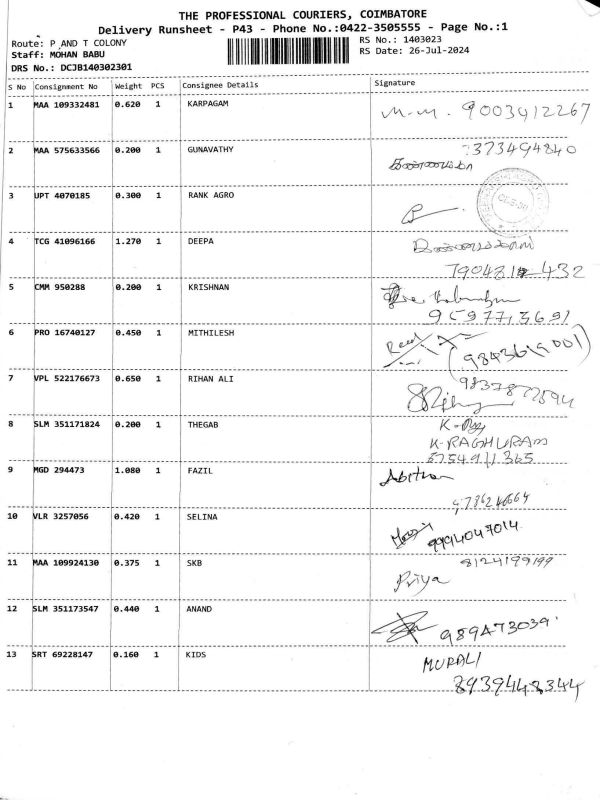 THE PROFESSIONAL COURIERS, COIMBATORE
Delivery Runsheet - P43 - Phone No.:0422-3505555 - Page No.:1
Route: P AND T COLONY
RS No.: 1403023
Staff: MOHAN BABU
RS Date: 26-Jul-2024
DRS No.: DCJB140302301
S No Consignment No Weight PCS Consignee Details Signature
1 MAA 109332481 0.620 1 KARPAGAM M.M. 9003412267
2 MAA 575633566 0.200 1 GUNAVATHY 373494840
3 UPT 4070185 0.300 1 RANK AGRO
4 TCG 41096166 1.270 1 DEEPA
5 CMM 950288 0.200 1 KRISHNAN
6 PRO 16740127 0.450 1 MITHILESH
7 VPL 522176673 0.650 1 RIHAN ALI
8 SLM 351171824 0.200 1 THEGAB
K-RAGHURAM
8754911365
9 MGD 294473 1.080 1 FAZIL
10 VLR 3257056 0.420 1 SELINA
9994047014
11 MAA 109924130 0.375 1 SKB 8124199199
Priya
12 SLM 351173547 0.440 1 ANAND
989473039
13 SRT 69228147 0.160 1 KIDS MURALI
8939448344